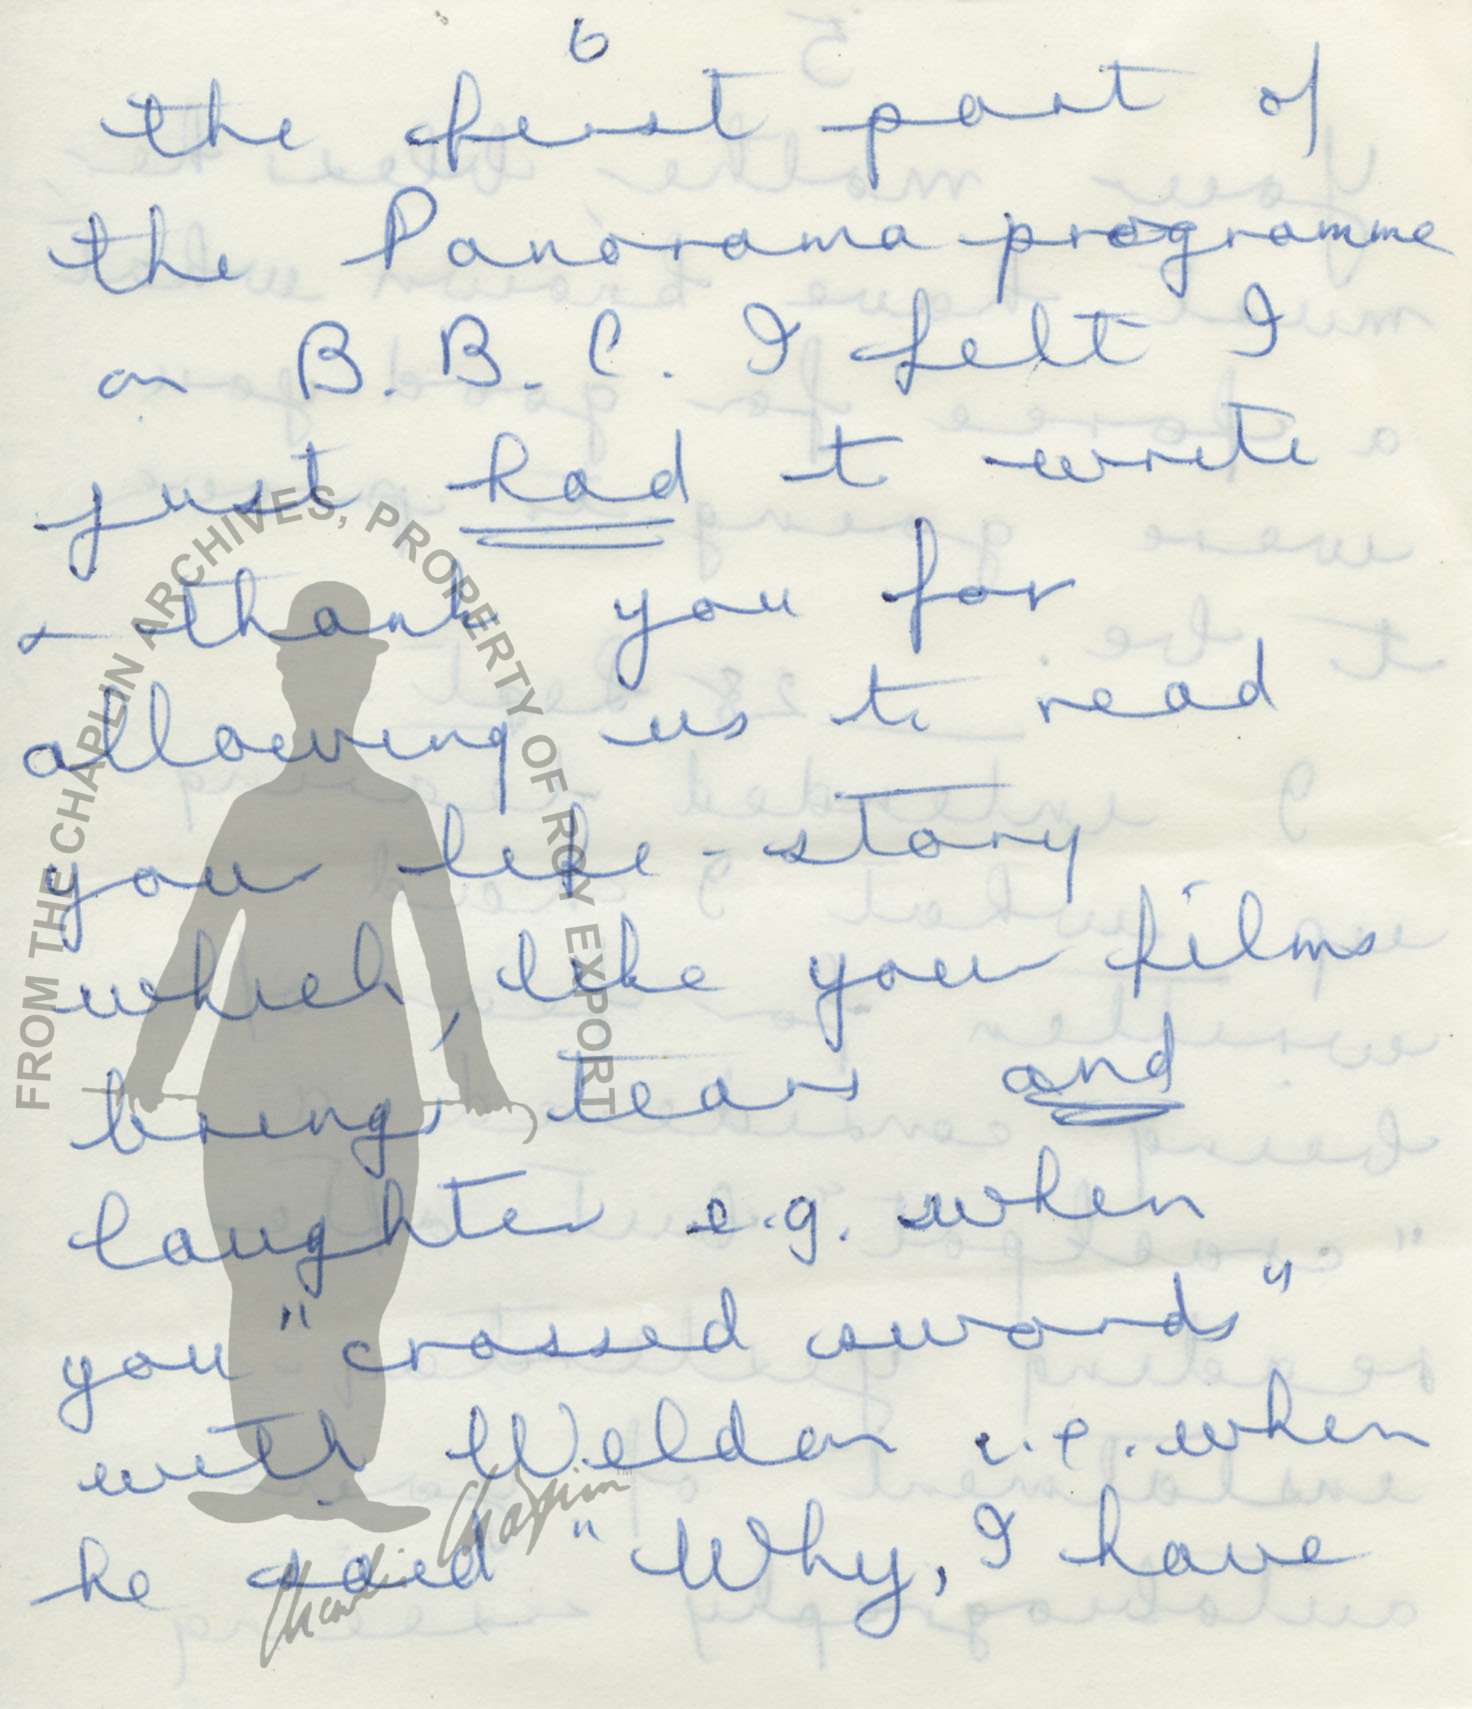 6
the first part of
the Panorama programme
on B.B.C. I felt I
just had to write
& thank you for
allowing us to read
your life-story
which, like your films
brings tears and
laughter e.g. when
you "crossed swords"
with Weldon i.e. when
he said "Why, I have
FROM THE CHAPLIN ARCHIVES, PROPERTY OF ROY EXPORT
Charlie Chaplin™